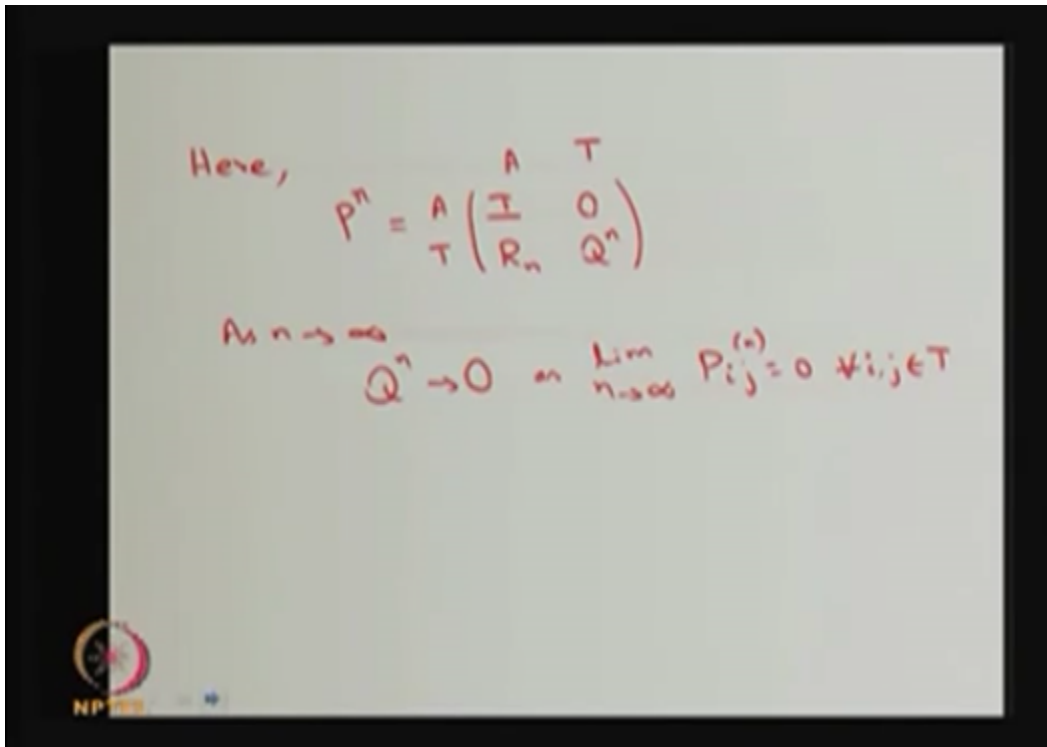 Here,
A T
Pⁿ = A ( I 0 )
T ( Rₙ Qⁿ )
As n → ∞
Qⁿ → 0 as lim n→∞ Pᵢⱼ⁽ⁿ⁾ = 0 ∀ i, j ∈ T
NPTEL